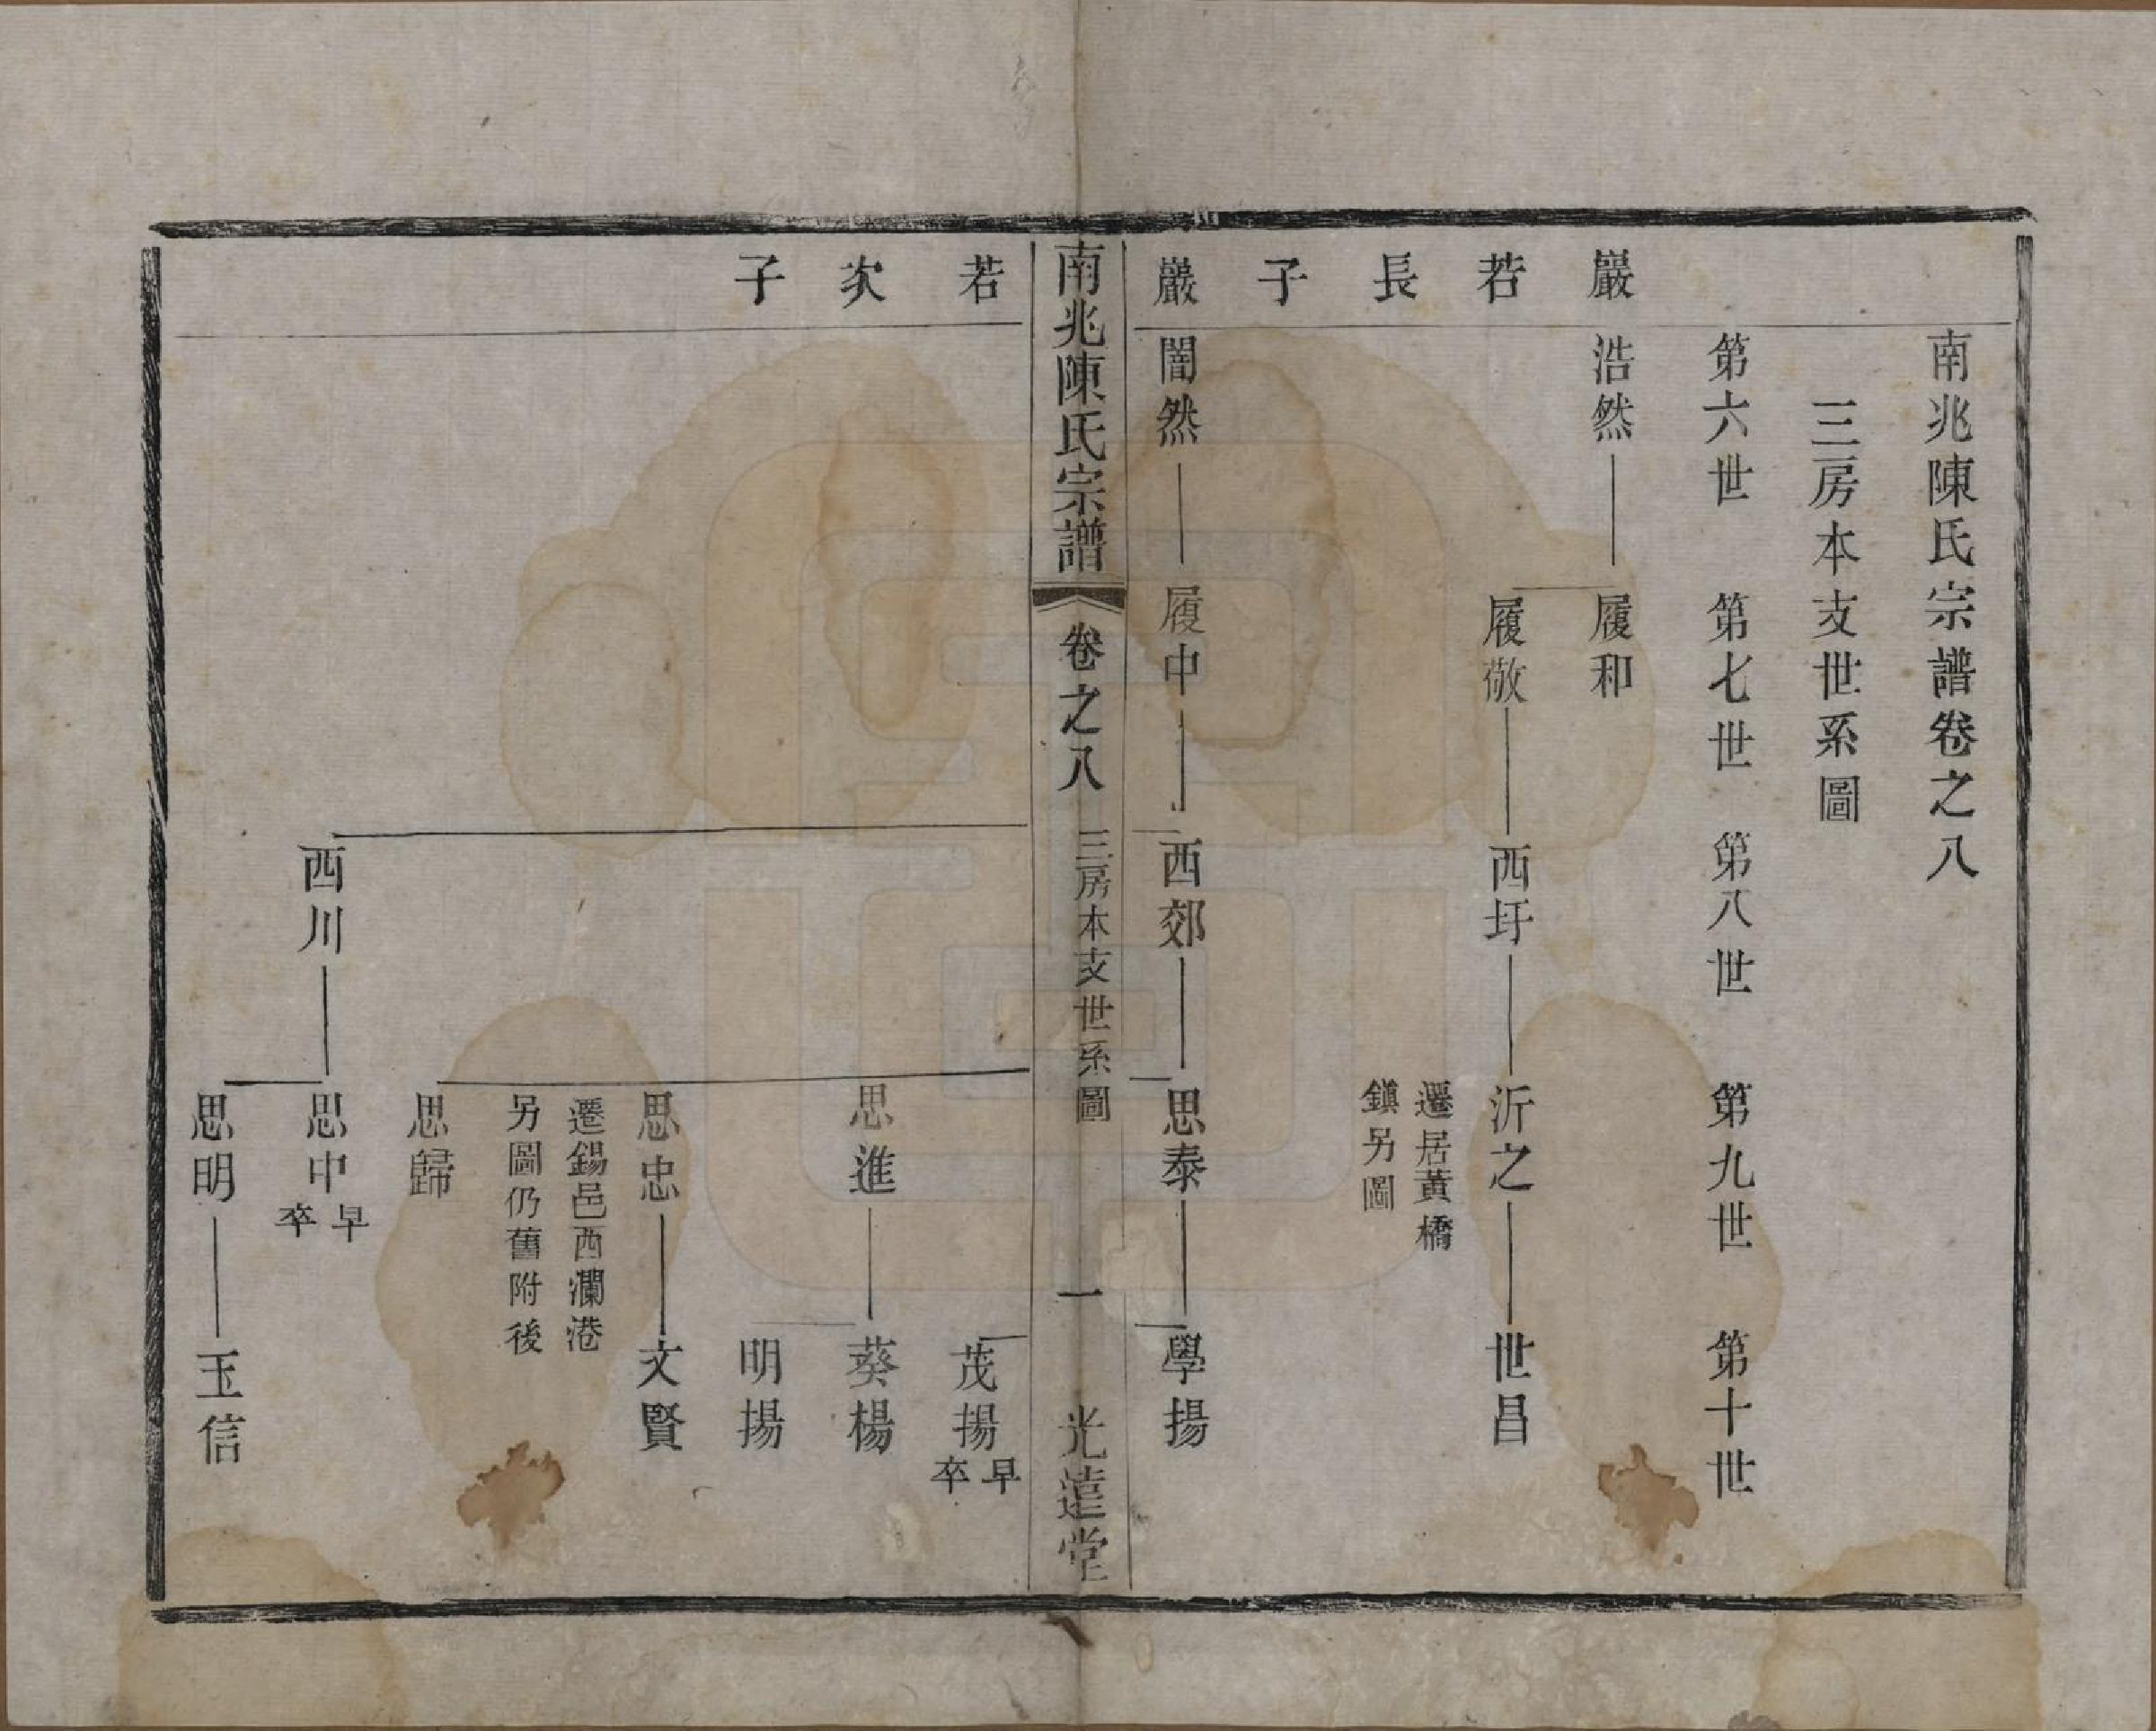 南兆陳氏宗譜卷之八
三房本支世系圖
第六世 第七世 第八世 第九世 第十世
巖 浩然 履和
若 履敬 西圩 沂之 世昌
長 遷居黃橋
鎮另圖
子
巖 闇然 履中 西郊 思泰 學揚
南兆陳氏宗譜 卷之八 三房本支世系圖 一 光遠堂
若 茂揚 早卒
次 思進 葵楊
子 明揚
思忠 文賢
遷錫邑西瀾港
另圖仍舊附後
思歸
西川 思中 早卒
思明 玉信